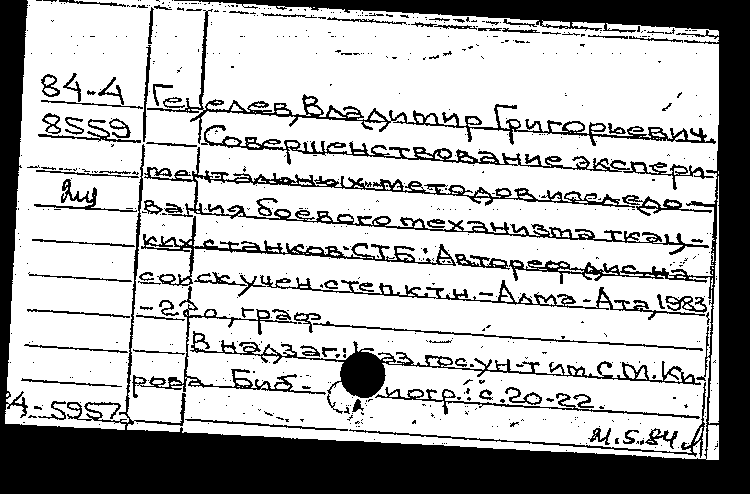 84-4
8559
2ш
Гецелев, Владимир Григорьевич.
Совершенствование экспери-
ментальных методов исследо-
вания боевого механизма ткац-
ких станков СТБ: Автореф. дис. на
соиск. учен. степ. к.т.н. - Алма-Ата, 1983
-22с., граф.
В надзаг.: Каз. гос. ун-т им. С.М. Ки-
рова Биб- иогр.: с. 20-22.
84-5957
21.5.84